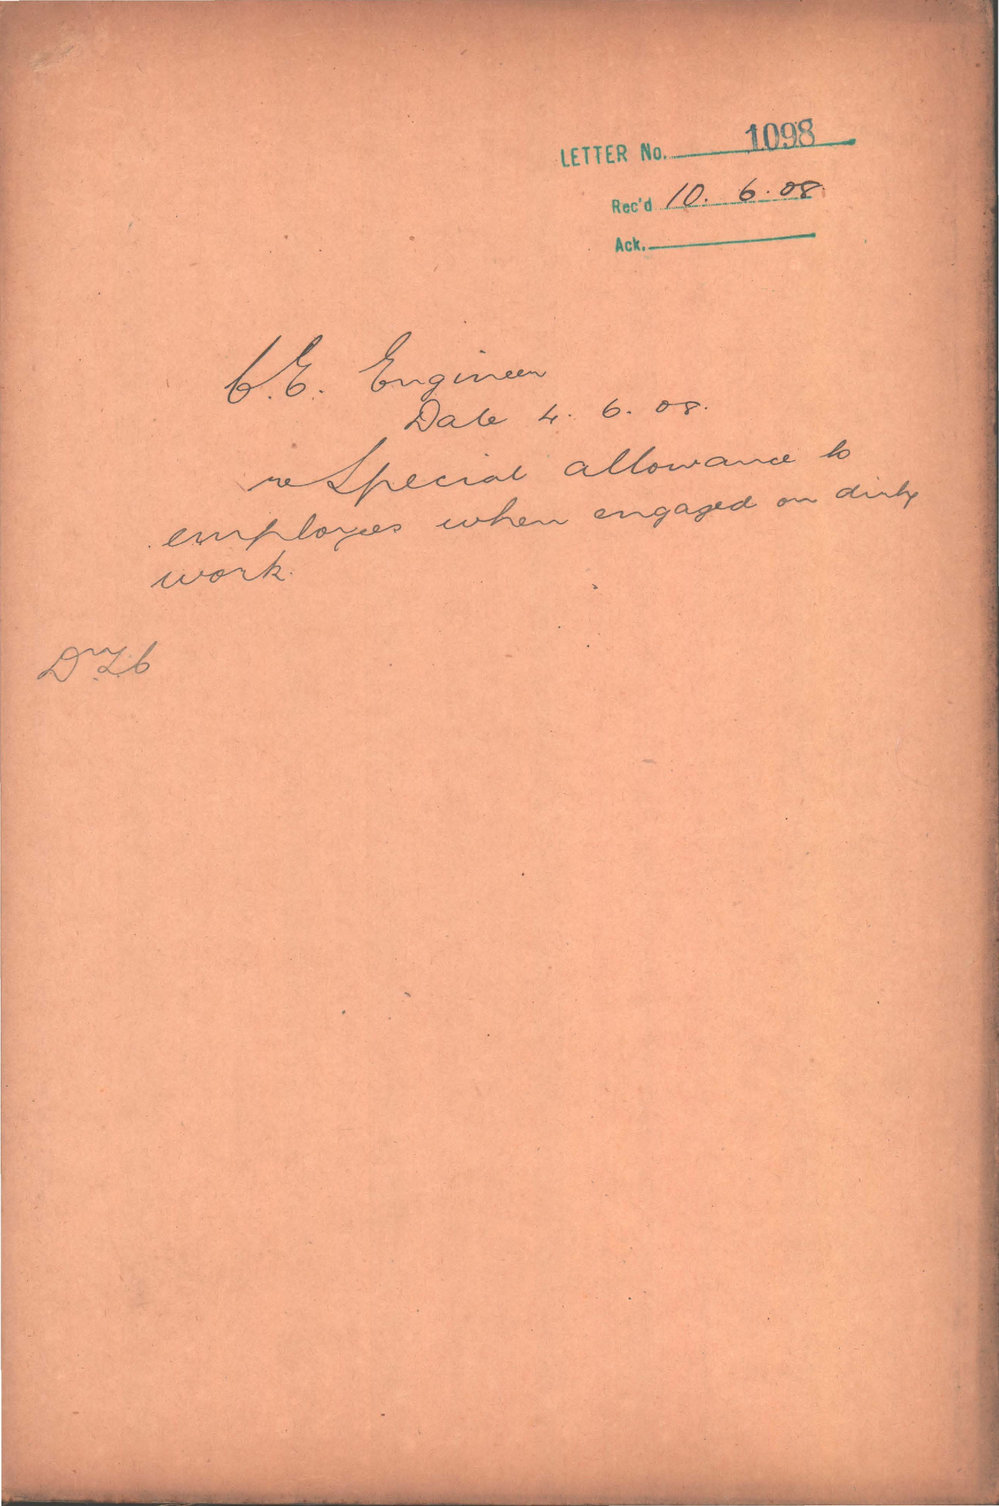 LETTER No. 1098
Rec'd 10. 6. 08
Ack.
C.E. Engineer
Date 4. 6. 08.
re Special allowance to
employees when engaged on dirty
work.